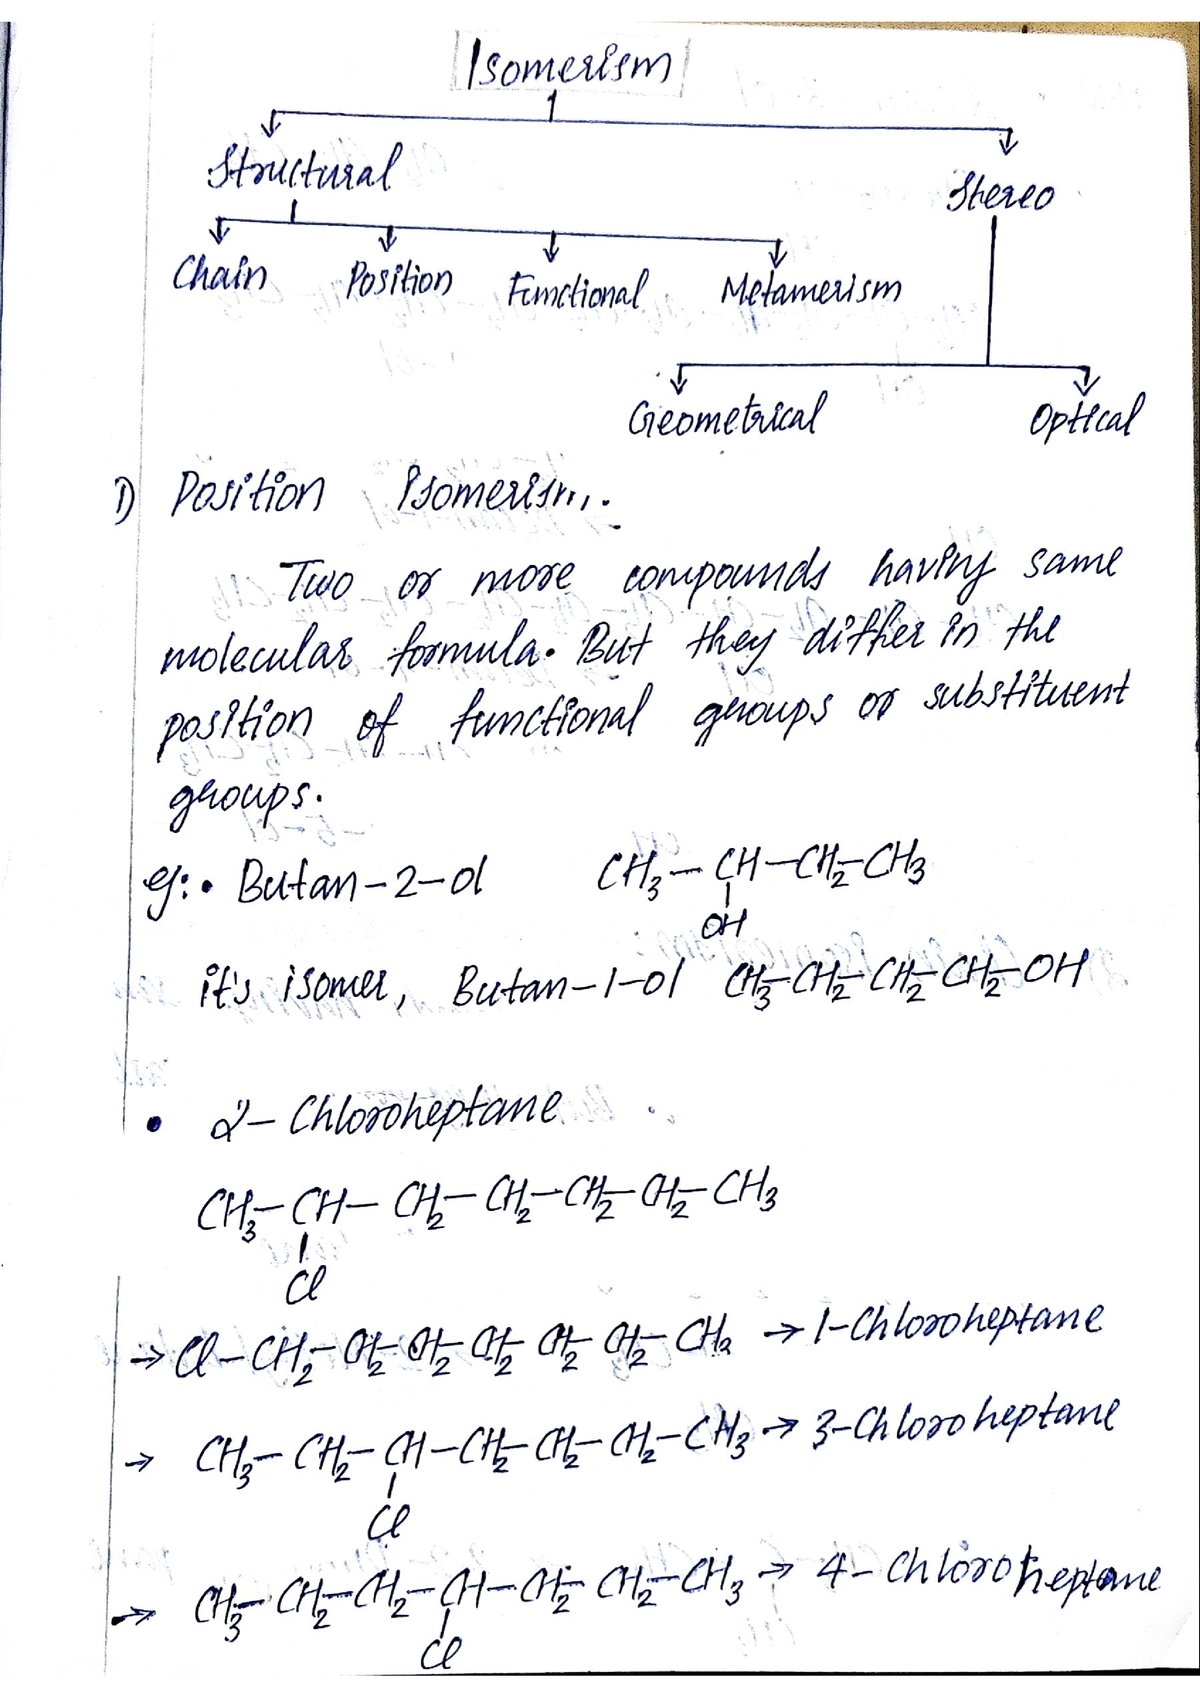 Isomerism
Structural
Stereo
Chain Position Functional Metamerism
Geometrical Optical
1) Position Isomerism.
Two or more compounds having same
molecular formula. But they differ in the
position of functional groups or substituent
groups.
eg: • Butan-2-ol CH₃-CH-CH₂-CH₃
OH
it's isomer, Butan-1-ol CH₃-CH₂-CH₂-CH₂-OH
• 2-Chloroheptane
CH₃-CH-CH₂-CH₂-CH₂-CH₂-CH₃
Cl
→ Cl-CH₂-CH₂-CH₂-CH₂-CH₂-CH₂-CH₃ → 1-Chloroheptane
→ CH₃-CH₂-CH-CH₂-CH₂-CH₂-CH₃ → 3-Chloroheptane
Cl
→ CH₃-CH₂-CH₂-CH-CH₂-CH₂-CH₃ → 4-Chloroheptane
Cl